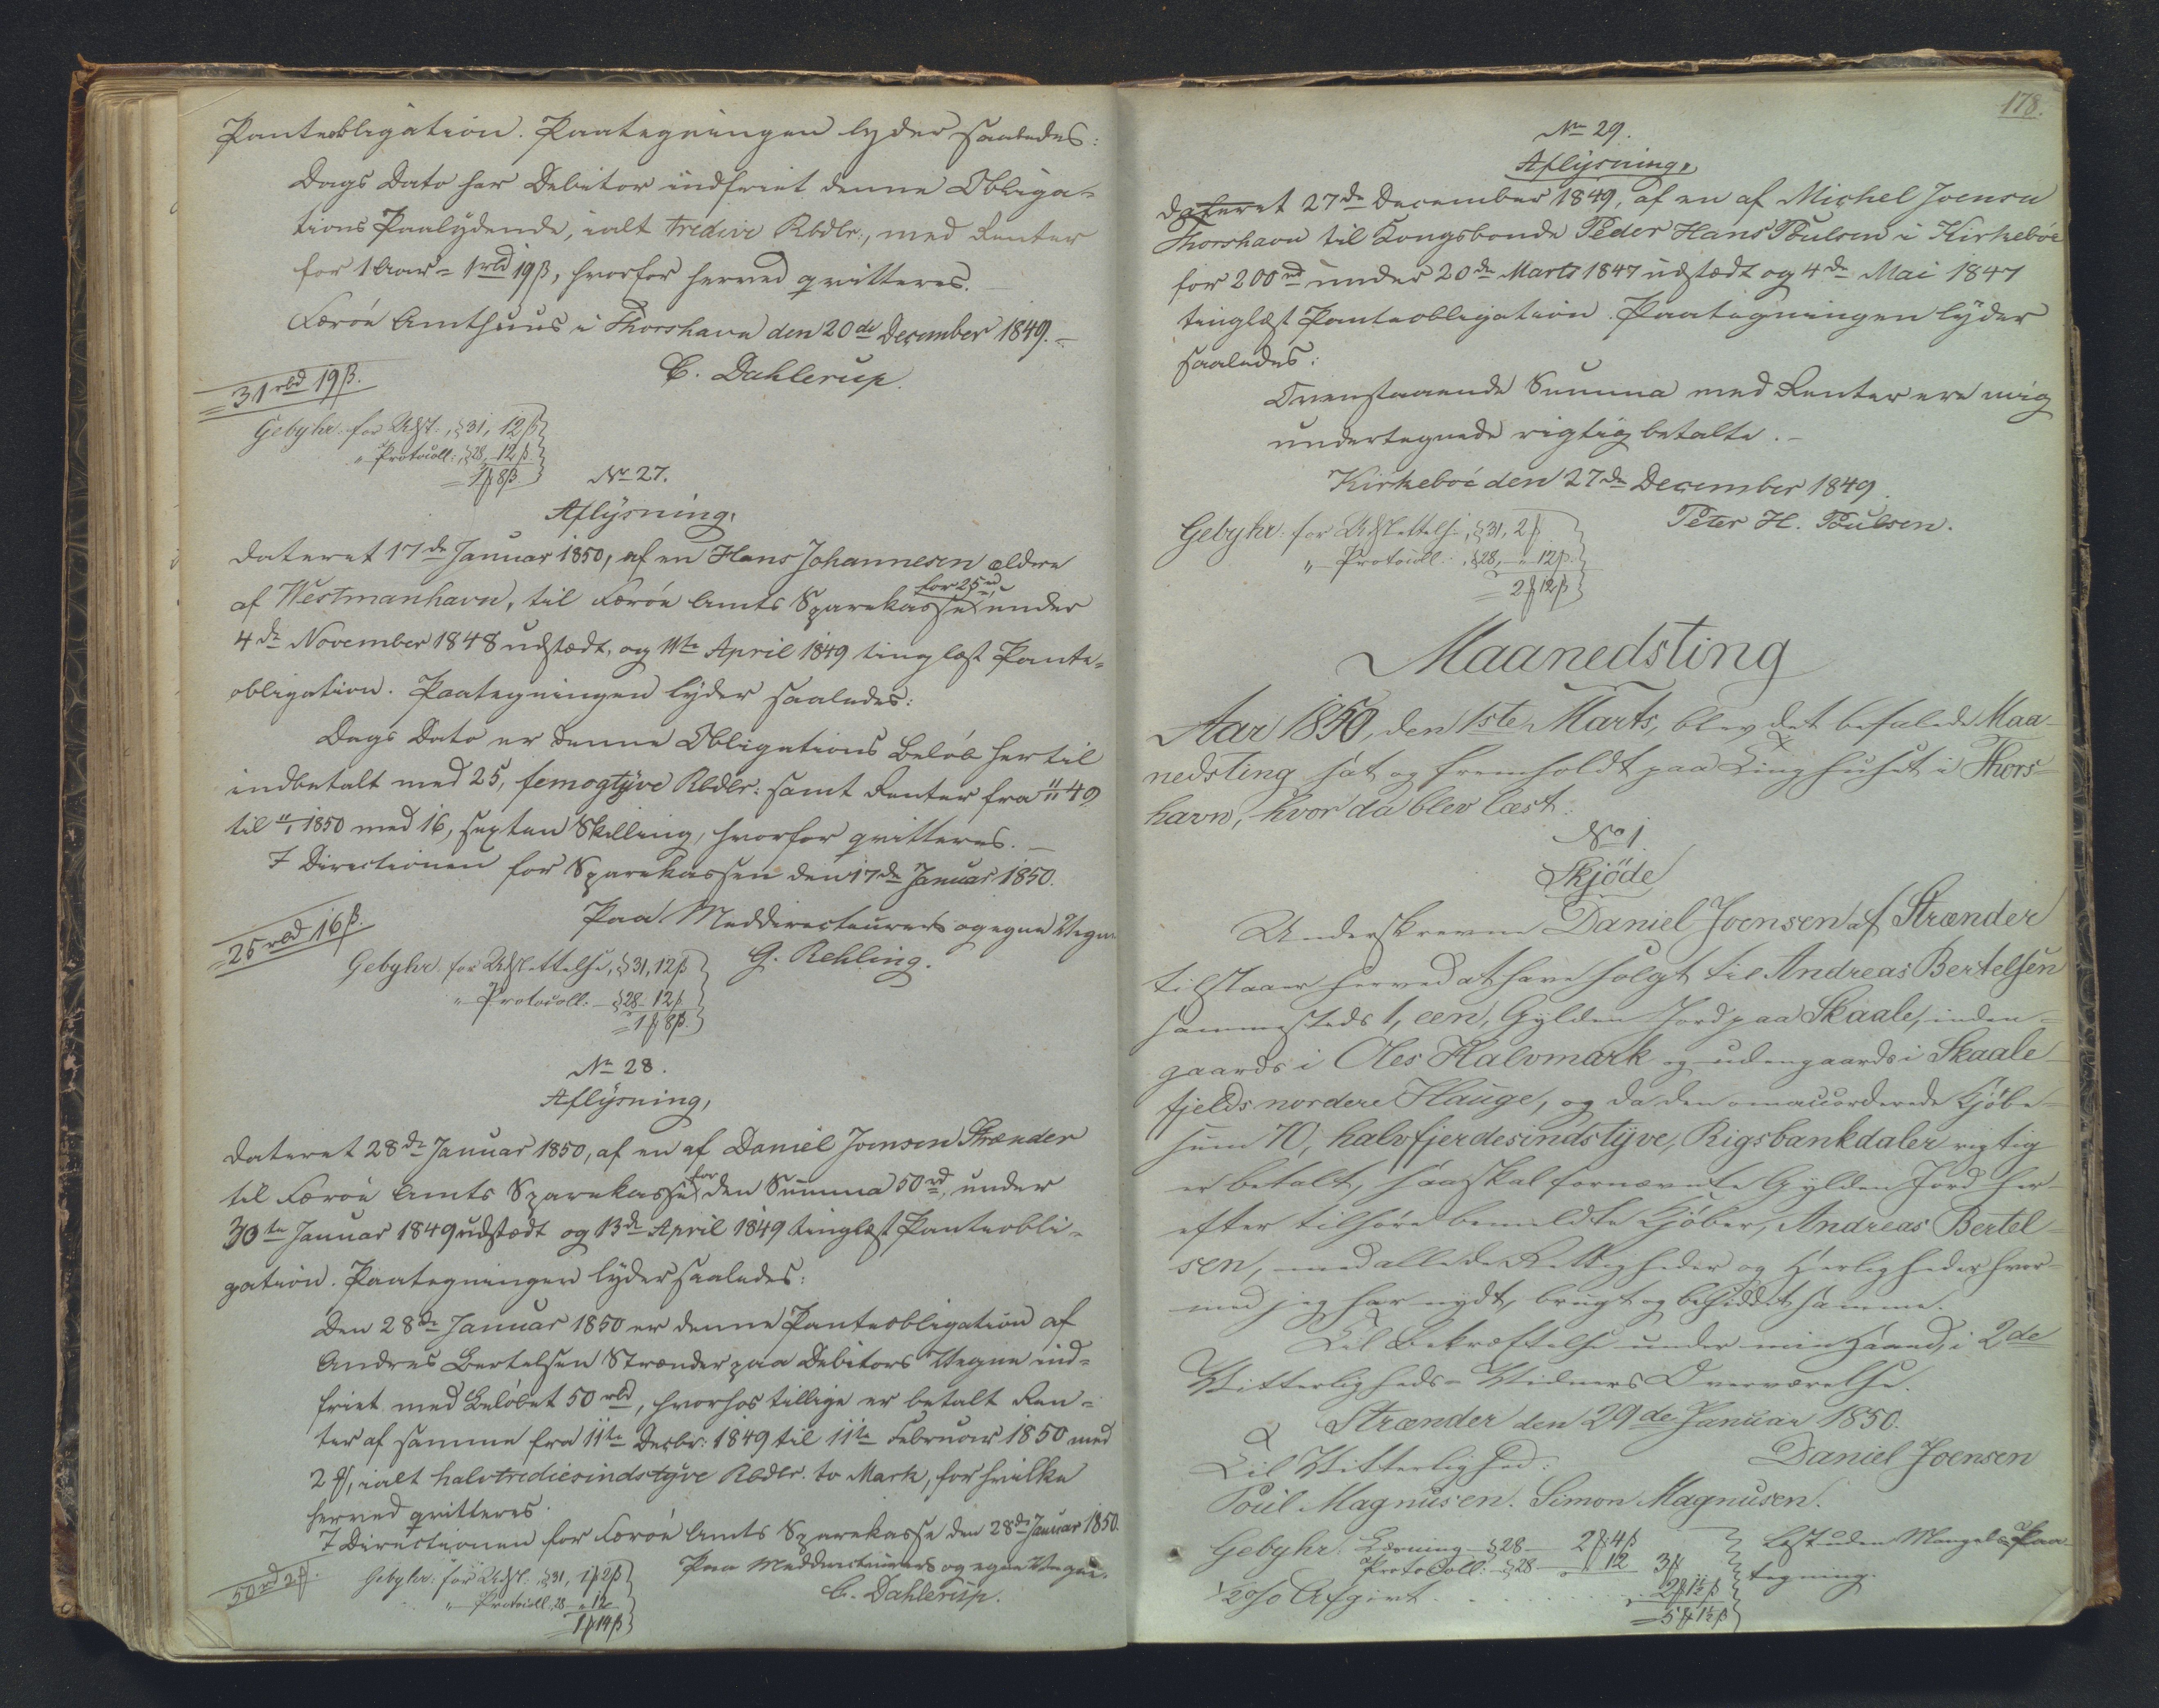 Panteobligation. Paategningen lyder saaledes:
Dags Dato har Debitor indfriet denne Obliga-
tions Paalydende, ialt tredive Rbdlr., med Renter
for 1 Aar = 1 rbd 19 ß, hvorfor herved qvitteres.
Færöe Amthuus i Thorshavn den 20de December 1849. -
C. Dahlerup.
= 31 rbd 19 ß.
Gebyhr: for Udsl: , § 31, 12 ß
" Protocoll: , § 28, 12 ß
= 1 # 8 ß.
No 27.
Aflysning,
dateret 17de Januar 1850, af en Hans Johannesen ældre
af Westmanhavn, til Færöe Amts Sparekasse for 25 rd, under
4de November 1848 udstædt, og 11te April 1849 tinglæst Pante-
obligation. Paategningen lyder saaledes:
Dags Dato er denne Obligations Beløb hertil
indbetalt med 25, femogtyve Rbdlr: samt Renter fra 11/11 49
til 11/1 1850 med 16, sexten Skilling, hvorfor qvitteres. -
I Directionen for Sparekassen den 17de Januar 1850.
Paa Meddirecteurers og egne Vegne
G. Rehling.
= 25 rbd 16 ß.
Gebyhr: for Udslettelse, § 31, 12 ß
" Protocoll: - § 28 - 12 ß
= 1 # 8 ß.
No 28.
Aflysning,
dateret 28de Januar 1850, af en af Daniel Joensen Strænder
til Færöe Amts Sparekasse for den Summa 50 rd, under
30te Januar 1849 udstædt og 13de April 1849 tinglæst Panteobli-
gation. Paategningen lyder saaledes:
Den 28de Januar 1850 er denne Panteobligation af
Andreas Bertelsen Strænder paa Debitors Vegne ind-
friet med Beløbet 50 rbd, hvorhos tillige er betalt Ren-
ter af samme fra 11te Decbr: 1849 til 11te Februar 1850 med
2 #, ialt halvtrediesindstyve Rbdlr. to Mark, for hvilke
herved qvitteres.
I Directionen for Færöe Amts Sparekasse den 28de Januar 1850.
Paa Meddirecteurers og egne Vegne.
C. Dahlerup.
50 rd 2 #.
Gebyhr: for Udsl: § 31, 1 # 2 ß
" Protocoll, 28 - " 12
1 # 14 ß
178.
No 29.
Aflysning,
dateret 27de December 1849, af en af Michel Joensen
Thorshavn til Kongsbonde Peder Hans Poulsen i Kirkeböe
for 200 rd under 20de Marts 1847 udstædt og 4de Mai 1847
tinglæst Panteobligation. Paategningen lyder
saaledes:
Ovenstaaende Summa med Renter ere mig
undertegnede rigtig betalte. -
Kirkeböe den 27de December 1849.
Peter H. Poulsen.
Gebyhr: for Udslettelse, § 31, 2 #
" Protocoll: , § 28, - " 12 ß.
= 2 # 12 ß
Maanedsting
Aar 1850, den 1ste Marts, blev det befalede Maa-
nedsting sat og fremholdt paa Tinghuset i Thors-
havn, hvor da blev læst:
No 1.
Skjöde
Underskrevne Daniel Joensen af Strænder
tilstaaer herved at have solgt til Andreas Bertelsen
sammesteds 1, een, Gylden Jord paa Skaale, inden-
gaards i Oles Halvmark og udengaards i Skaale
fjelds nordere Hauge, og da den omaccorderede Kjöbe-
sum 70, halvfjerdesindstyve, Rigsbankdaler rigtig
er betalt, saa skal fornævnte Gylden Jord her-
efter tilhöre bemeldte Kjöber, Andreas Bertel-
sen, med alle de Rettigheder og Herligheder hvor-
med jeg har nydt, brugt og besiddet samme.
Til Bekræftelse under min Haand, i 2de
Vitterligheds-Vidners Overværelse.
Strænder den 29de Januar 1850.
Daniel Joensen
Til Vitterlighed:
Poul Magnusen. Simon Magnusen.
Gebyhr: Læsning - § 28 - 2 # 4 ß
Protocoll: - § 28 - " 12 3 #
1/2 o/o Afgivt . . . . . 2 # 1 1/2 ß
= 5 # 1 1/2 ß
Læst uden Mangels Paa-
tegning.